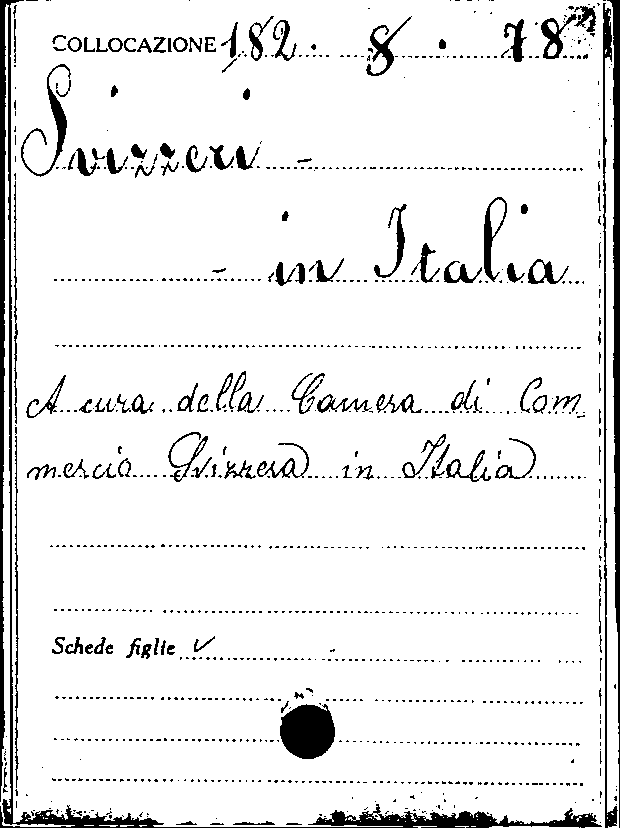 COLLOCAZIONE 182. 8. 78
Svizzeri -
- in Italia
A cura della Camera di Com-
mercio Svizzera in Italia
Schede figlie ✓